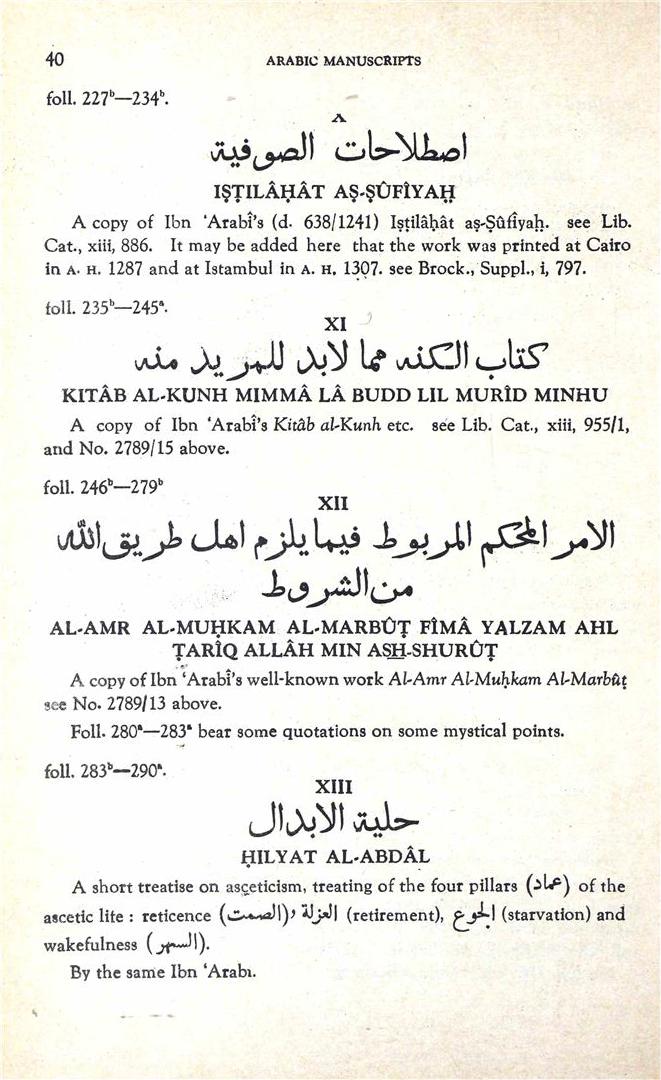 40 ARABIC MANUSCRIPTS
foll. 227ᵇ—234ᵇ.
اصطلاحات الصوفية
IṢṬILÂḤÂT AṢ-ṢÛFÎYAḤ
A copy of Ibn ‘Arabî’s (d. 638/1241) Iṣṭilâḥât aṣ-Ṣûfîyaḥ. see Lib.
Cat., xiii, 886. It may be added here that the work was printed at Cairo
in A. H. 1287 and at Istambul in A. H. 1307. see Brock., Suppl., i, 797.
foll. 235ᵇ—245ᵃ.
XI
كتاب الكنه مما لابد للمريد منه
KITÂB AL-KUNH MIMMÂ LÂ BUDD LIL MURÎD MINHU
A copy of Ibn ‘Arabî’s Kitâb al-Kunh etc. see Lib. Cat., xiii, 955/1,
and No. 2789/15 above.
foll. 246ᵇ—279ᵇ
XII
الامر المحكم المربوط فيما يلزم اهل طريق الله
من الشروط
AL-AMR AL-MUḤKAM AL-MARBÛṬ FÎMÂ YALZAM AHL
ṬARÎQ ALLÂH MIN ASH-SHURÛṬ
A copy of Ibn ‘Arabî’s well-known work Al-Amr Al-Muḥkam Al-Marbûṭ
see No. 2789/13 above.
Foll. 280ᵃ—283ᵃ bear some quotations on some mystical points.
foll. 283ᵇ—290ᵃ.
XIII
حلية الابدال
ḤILYAT AL-ABDÂL
A short treatise on asçeticism, treating of the four pillars (عماد) of the
ascetic life : reticence (الصمت)، العزلة (retirement), الجوع (starvation) and
wakefulness (السهر).
By the same Ibn ‘Arabı.